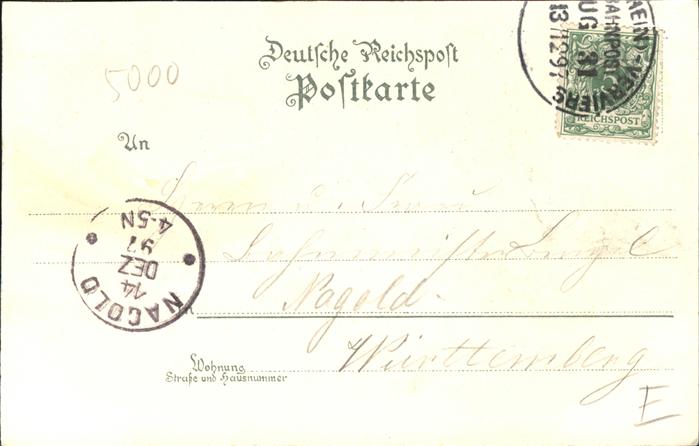 5000
Deutsche Reichspost
Postkarte
(RHEIN)-VERVIERS
BAHNPOST
ZUG 31
13/12 97
5
REICHSPOST
An
Herrn u. Frau
Bahnmeister
Nagold
Württemberg
NAGOLD
14
DEZ
97
4-5N
Wohnung
Straße und Hausnummer
E